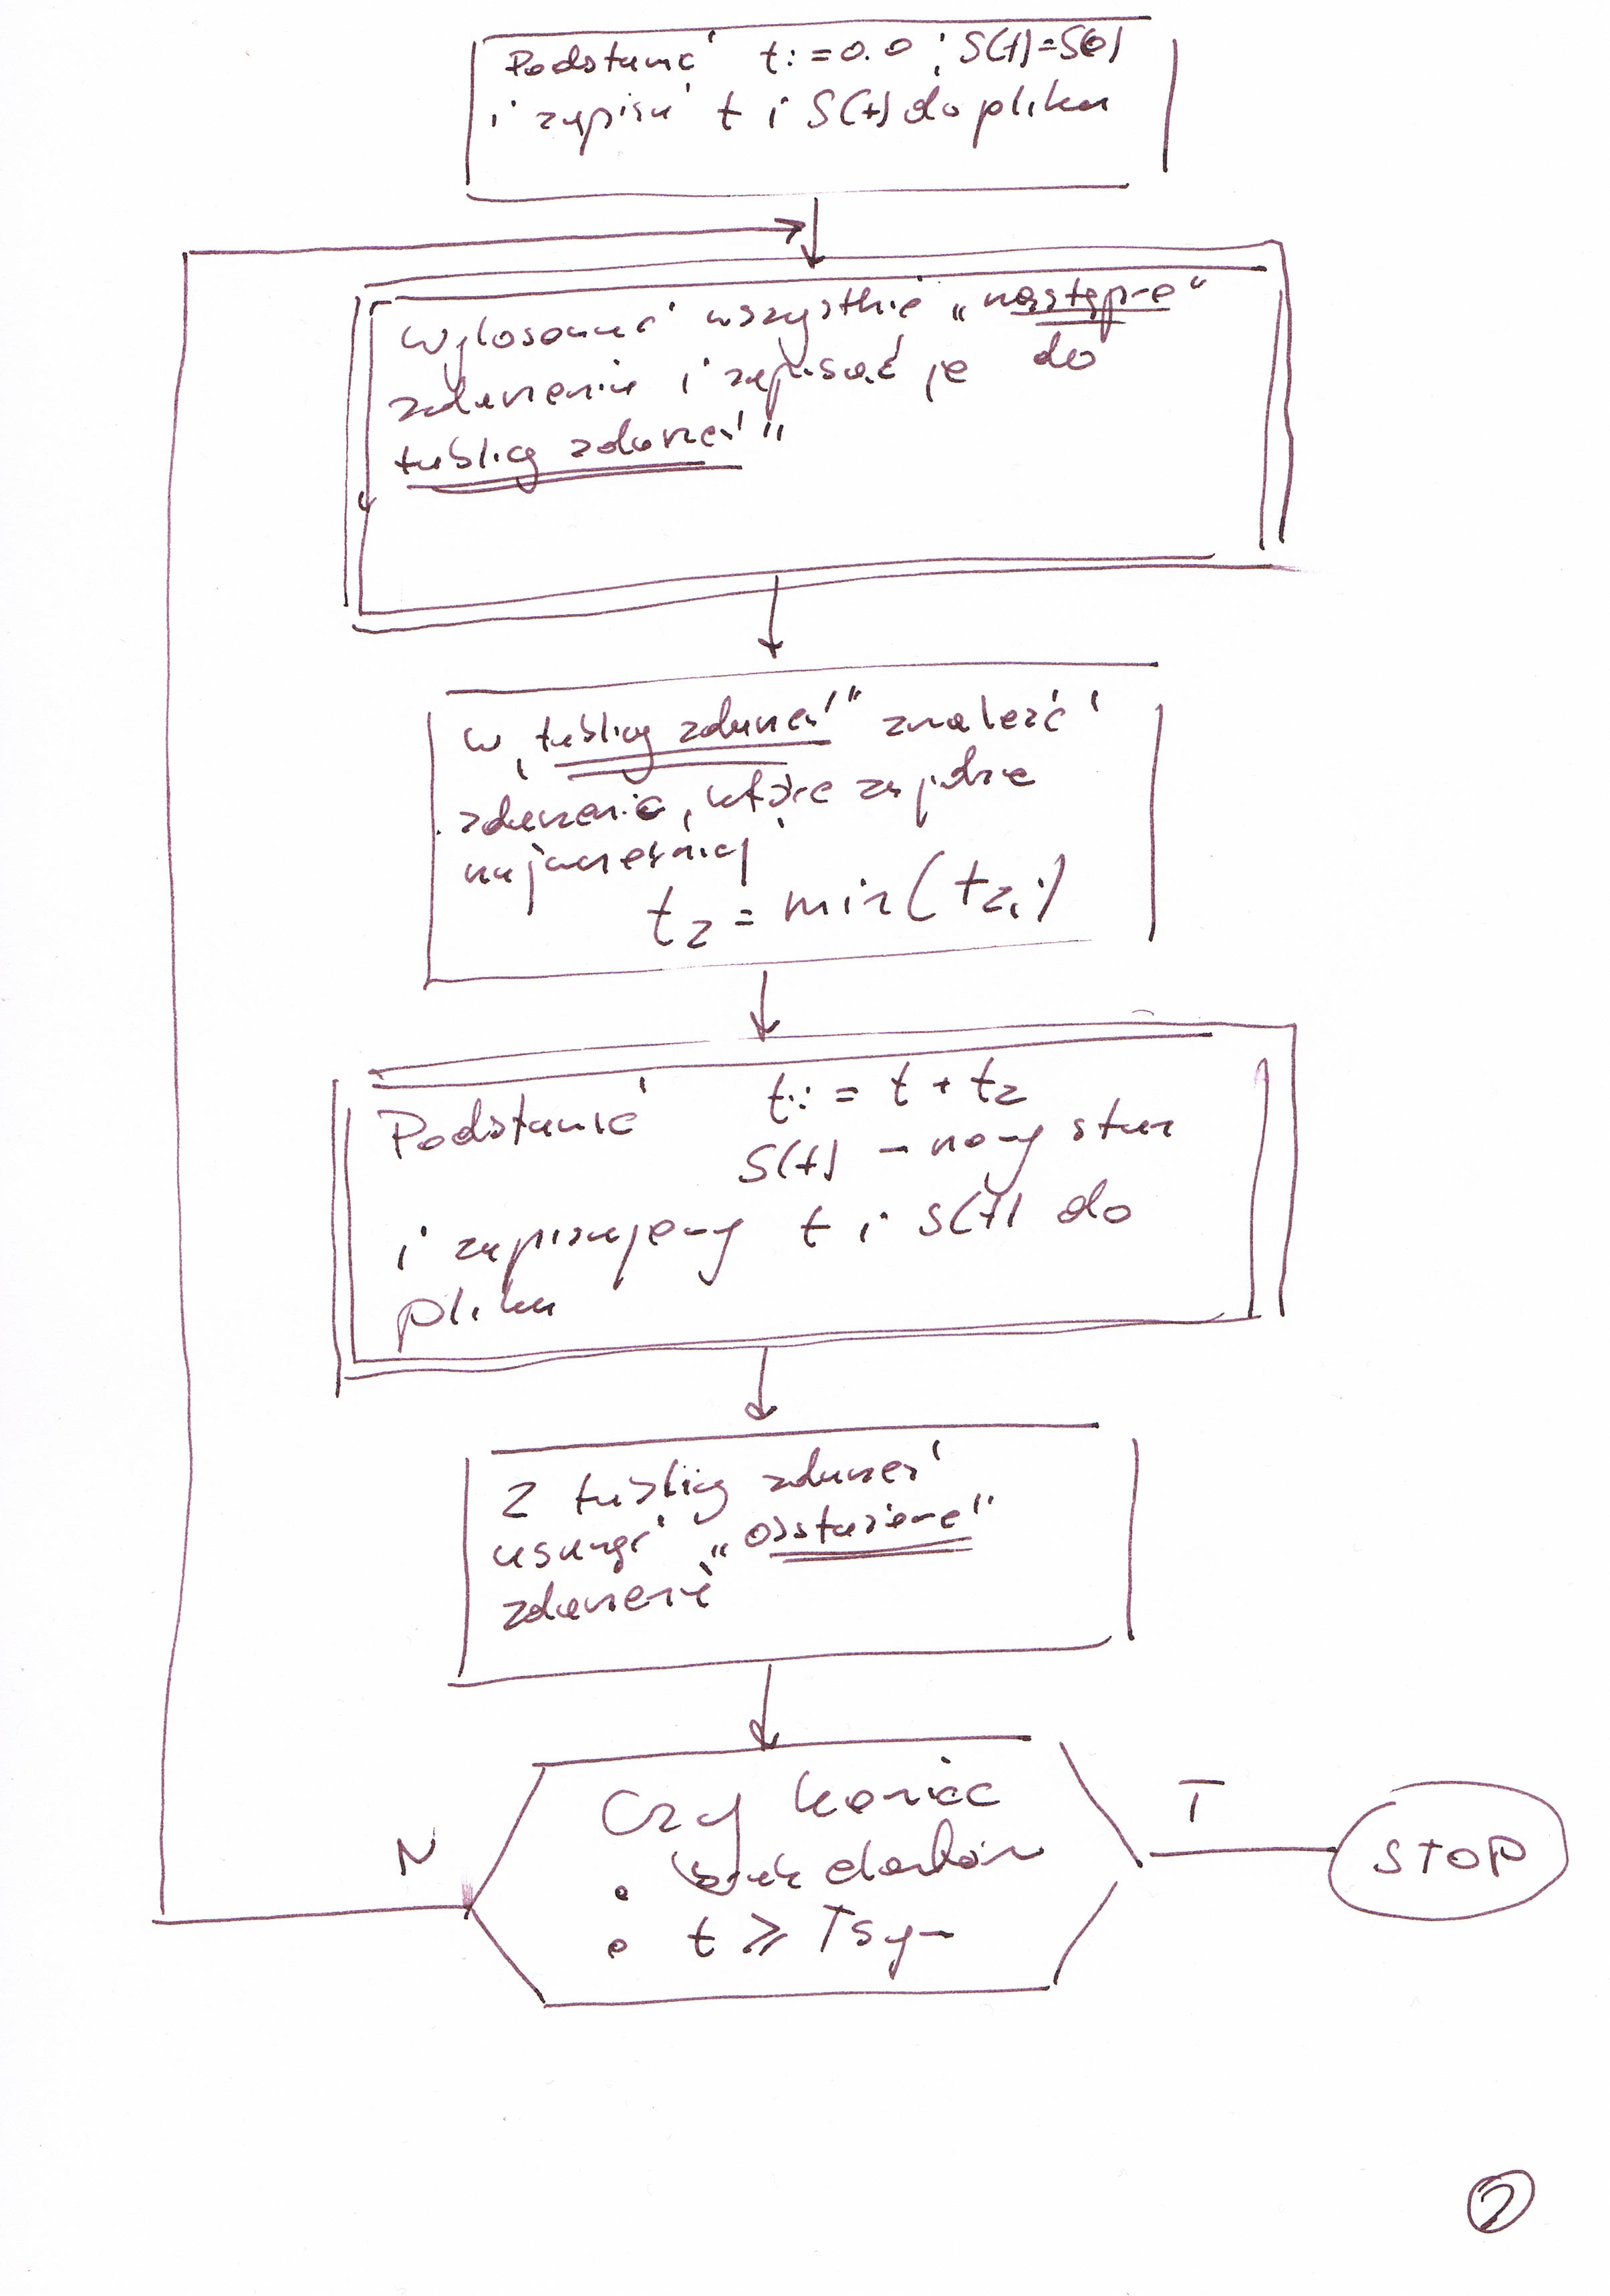 Podstawić t:=0.0; S(t)=S(0)
i zapisać t i S(t) do pliku
Wylosować wszystkie „następne"
zdarzenia i zapisać je do
tablicy zdarzeń"
W „tablicy zdarzeń" znaleźć
zdarzenie, które zajdzie
najwcześniej
tz = min(tzi)
Podstawić t:=t+tz
S(t) – nowy stan
i zapisujemy t i S(t) do
pliku
Z tablicy zdarzeń
usunąć „obsłużone"
zdarzenie
Czy koniec
• brak
• t ≥ Tsym
N
T
STOP
2